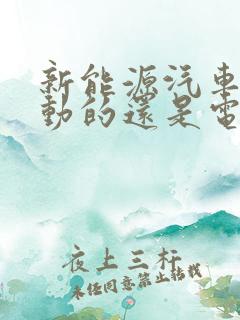 新能源汽車
動的還是電
夜上三杆
未经同意禁止转载